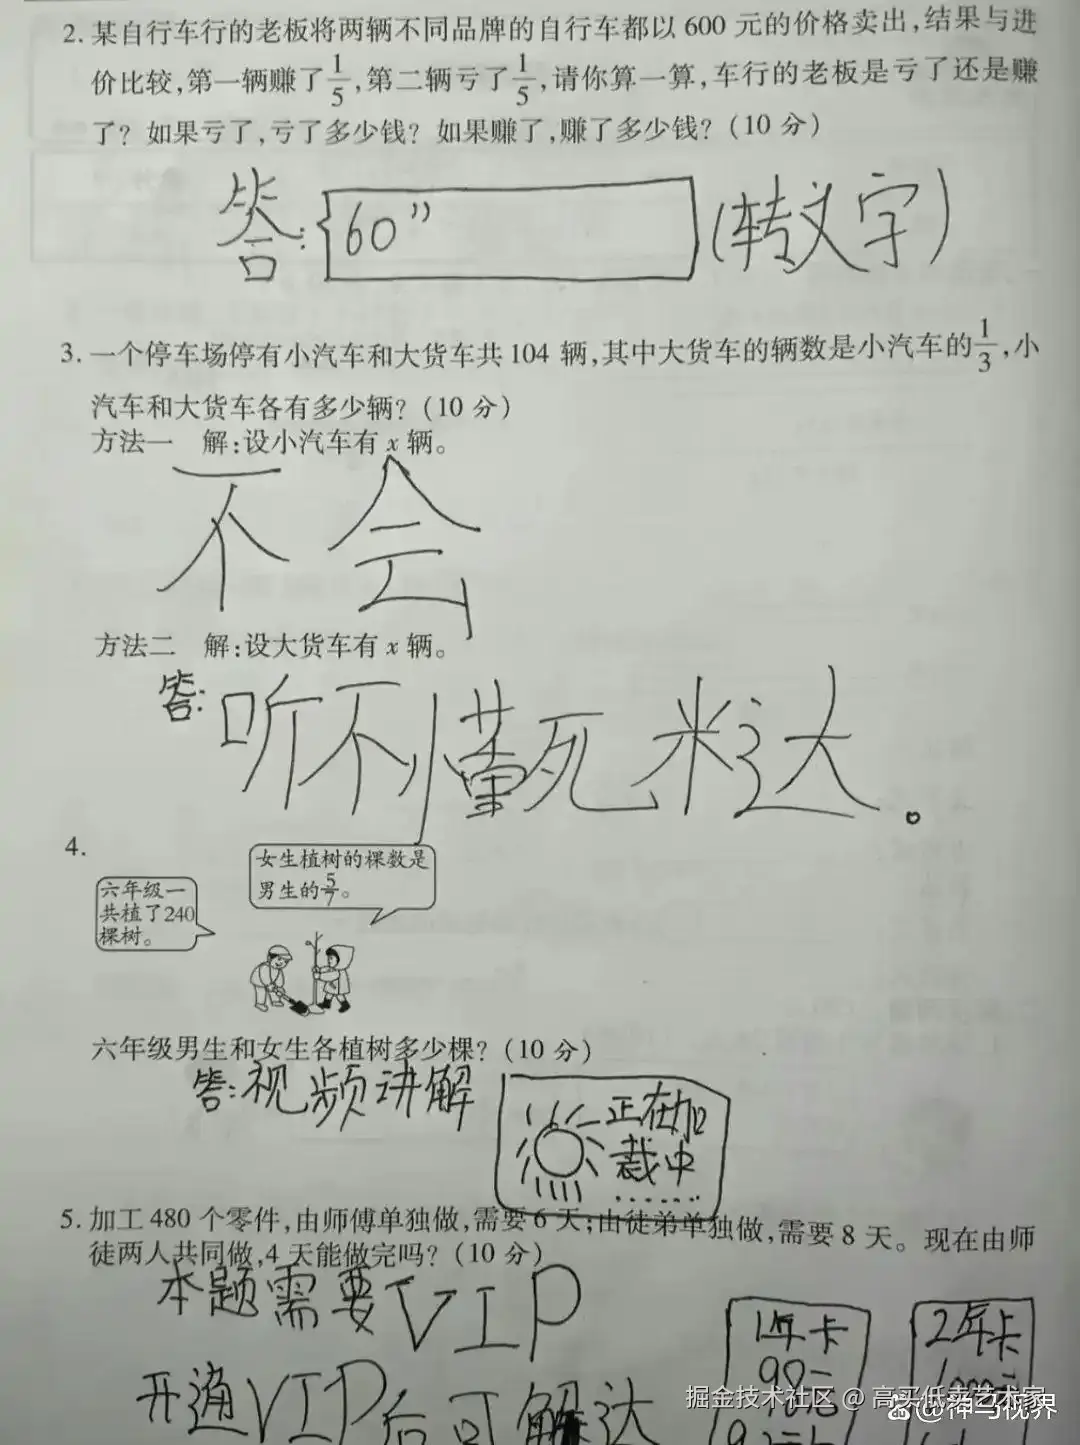 2. 某自行车行的老板将两辆不同品牌的自行车都以600元的价格卖出,结果与进
价比较,第一辆赚了1/5,第二辆亏了1/5,请你算一算,车行的老板是亏了还是赚
了？如果亏了,亏了多少钱？如果赚了,赚了多少钱？(10分)
答: 60” (转文字)
3. 一个停车场停有小汽车和大货车共104辆,其中大货车的辆数是小汽车的1/3,小
汽车和大货车各有多少辆？(10分)
方法一 解:设小汽车有x辆。
不会
方法二 解:设大货车有x辆。
答: 听不懂死米达。
4.
女生植树的棵数是
男生的5/7。
六年级一
共植了240
棵树。
六年级男生和女生各植树多少棵？(10分)
答:视频讲解
正在加
裁中
......
5. 加工480个零件,由师傅单独做,需要6天;由徒弟单独做,需要8天。现在由师
徒两人共同做,4天能做完吗？(10分)
本题需要VIP
1年卡
98元
2年卡
开通VIP后可解达
掘金技术社区 @ 高买低卖艺术家
@神马视界